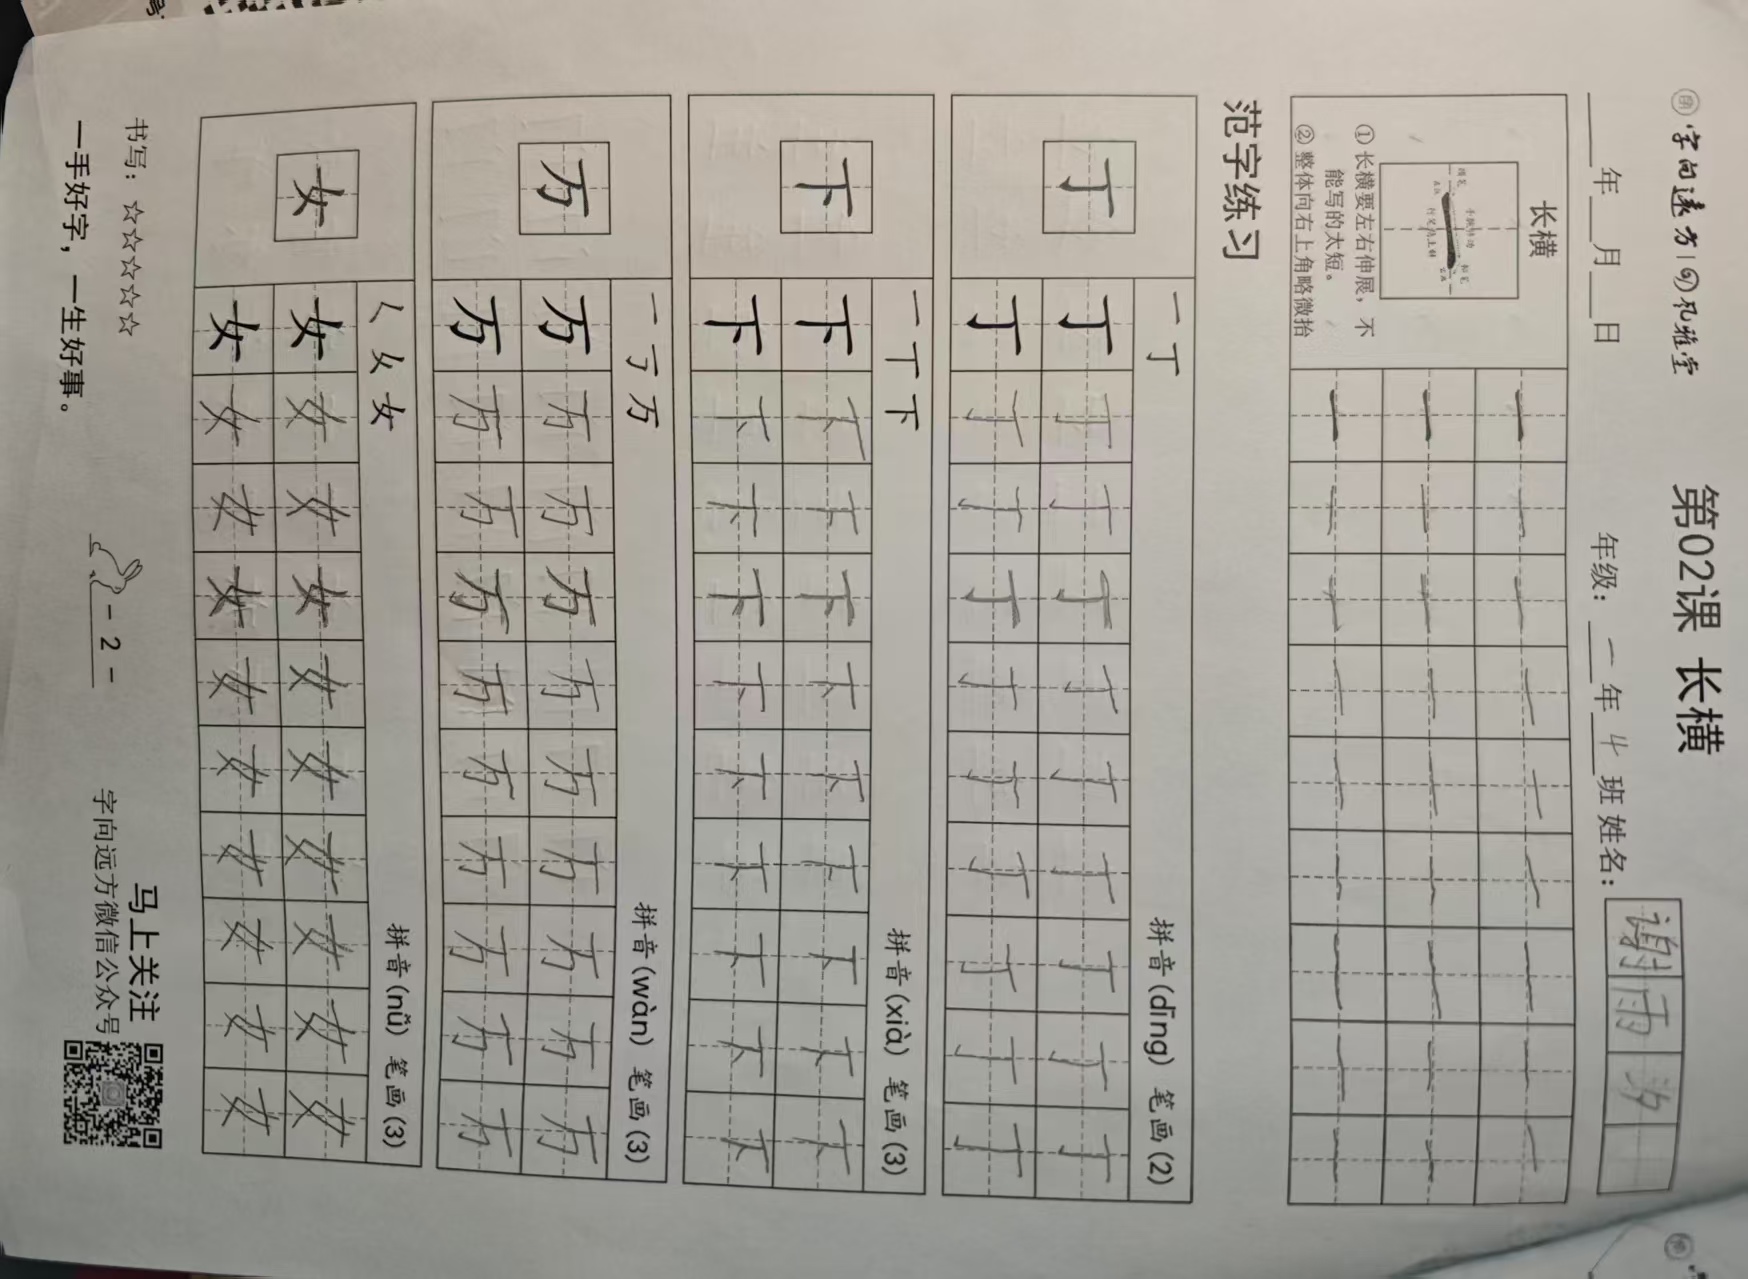 字向远方
第02课 长横
___年___月___日 年级：一年4班 姓名：谢雨汐
长横
① 长横要左右伸展，不
能写的太短。
② 整体向右上角略微抬
一 一 一 一 一 一 一 一 一
一 一 一 一 一 一 一 一 一
一 一 一 一 一 一 一 一 一
范字练习
丁
一 丁 拼音(dīng) 笔画(2)
丁 丁 丁 丁 丁 丁 丁 丁 丁 丁
丁 丁 丁 丁 丁 丁 丁 丁 丁 丁
下
一 丅 下 拼音(xià) 笔画(3)
下 下 下 下 下 下 下 下 下 下
下 下 下 下 下 下 下 下 下 下
万
一 丂 万 拼音(wàn) 笔画(3)
万 万 万 万 万 万 万 万 万 万
万 万 万 万 万 万 万 万 万 万
女
𡿨 女 女 拼音(nǚ) 笔画(3)
女 女 女 女 女 女 女 女 女 女
女 女 女 女 女 女 女 女 女 女
书写：☆☆☆☆☆
马上关注
字向远方微信公众号
一手好字，一生好事。
- 2 -